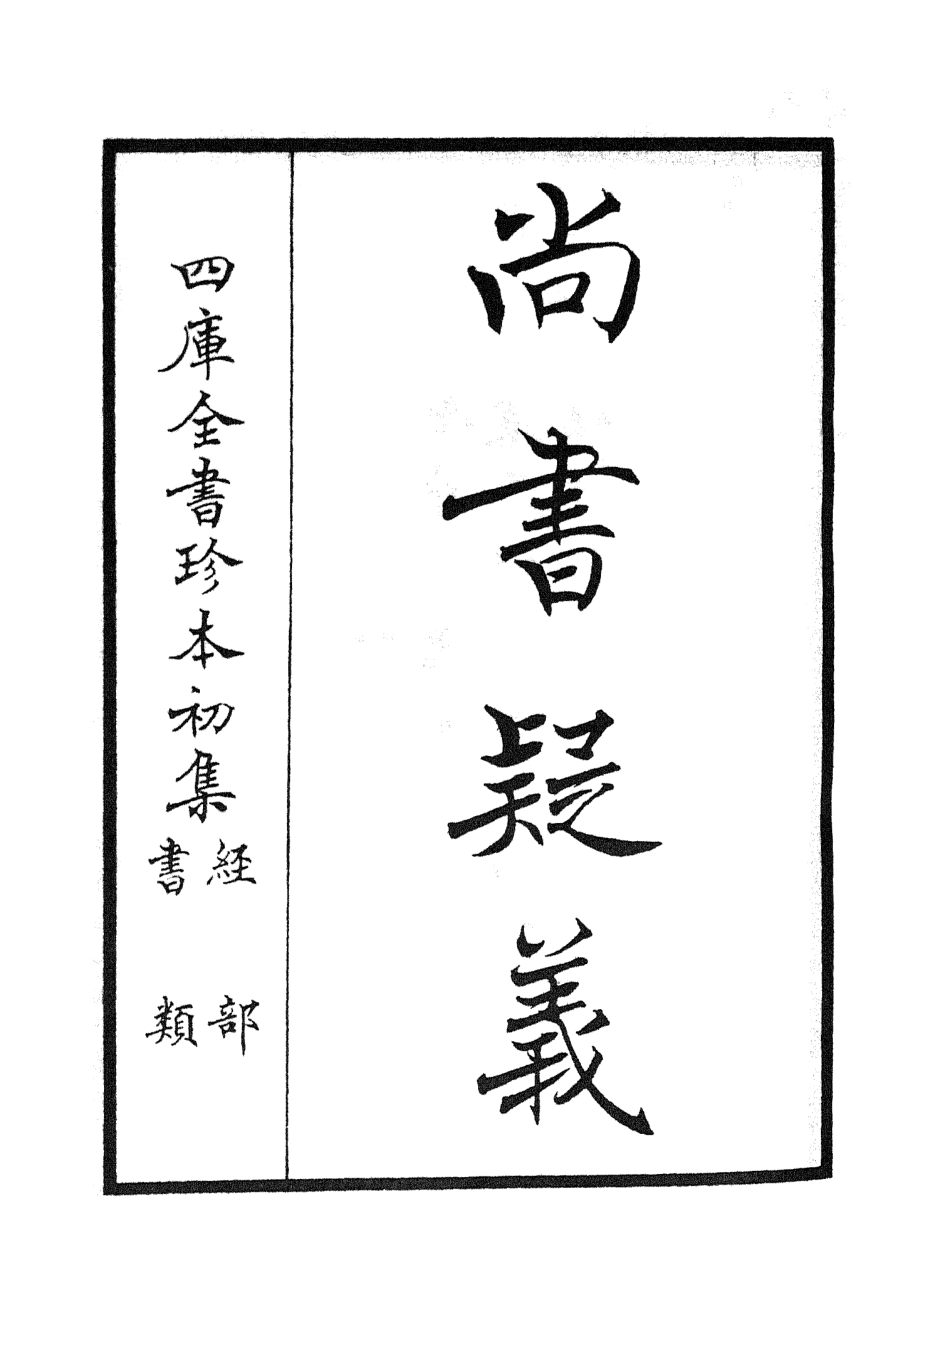 尚書疑義
四庫全書珍本初集
經部
書類